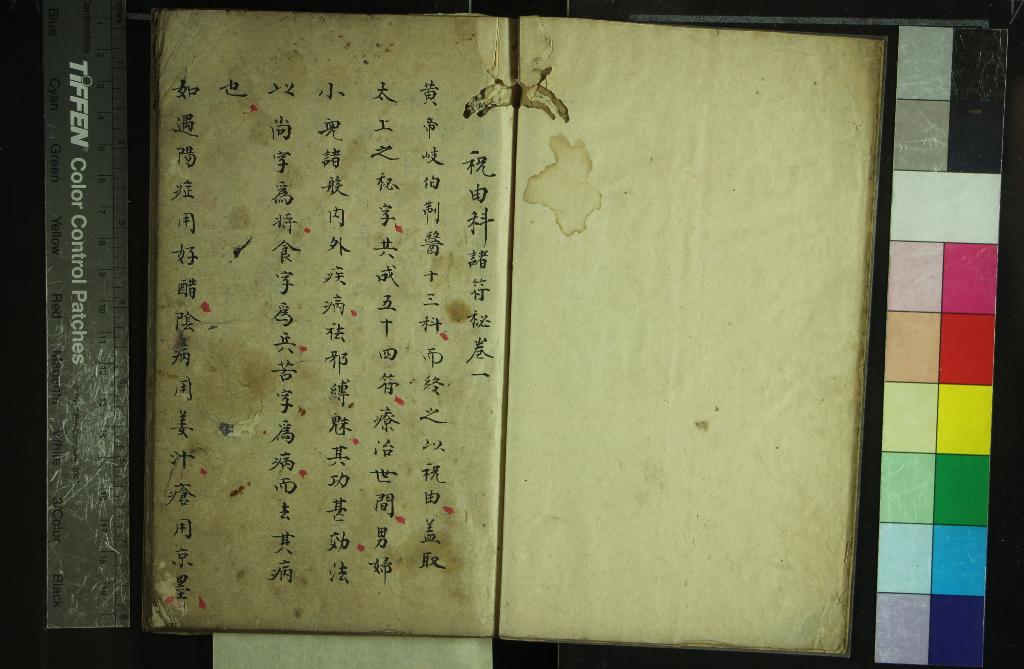 祝由科諸符秘卷一
黃帝岐伯制醫十三科而終之以祝由盖取
太上之秘字共成五十四符療治世間男婦
小兒諸般內外疾病祛邪縛魅其功甚効法
以尚字為將食字為兵苦字為病而去其病
也
如遇陽症用好醋陰病用姜汁瘡用京墨
TIFFEN Color Control Patches
Blue Cyan Green Yellow Red Magenta White 3/Color Black
Centimetres